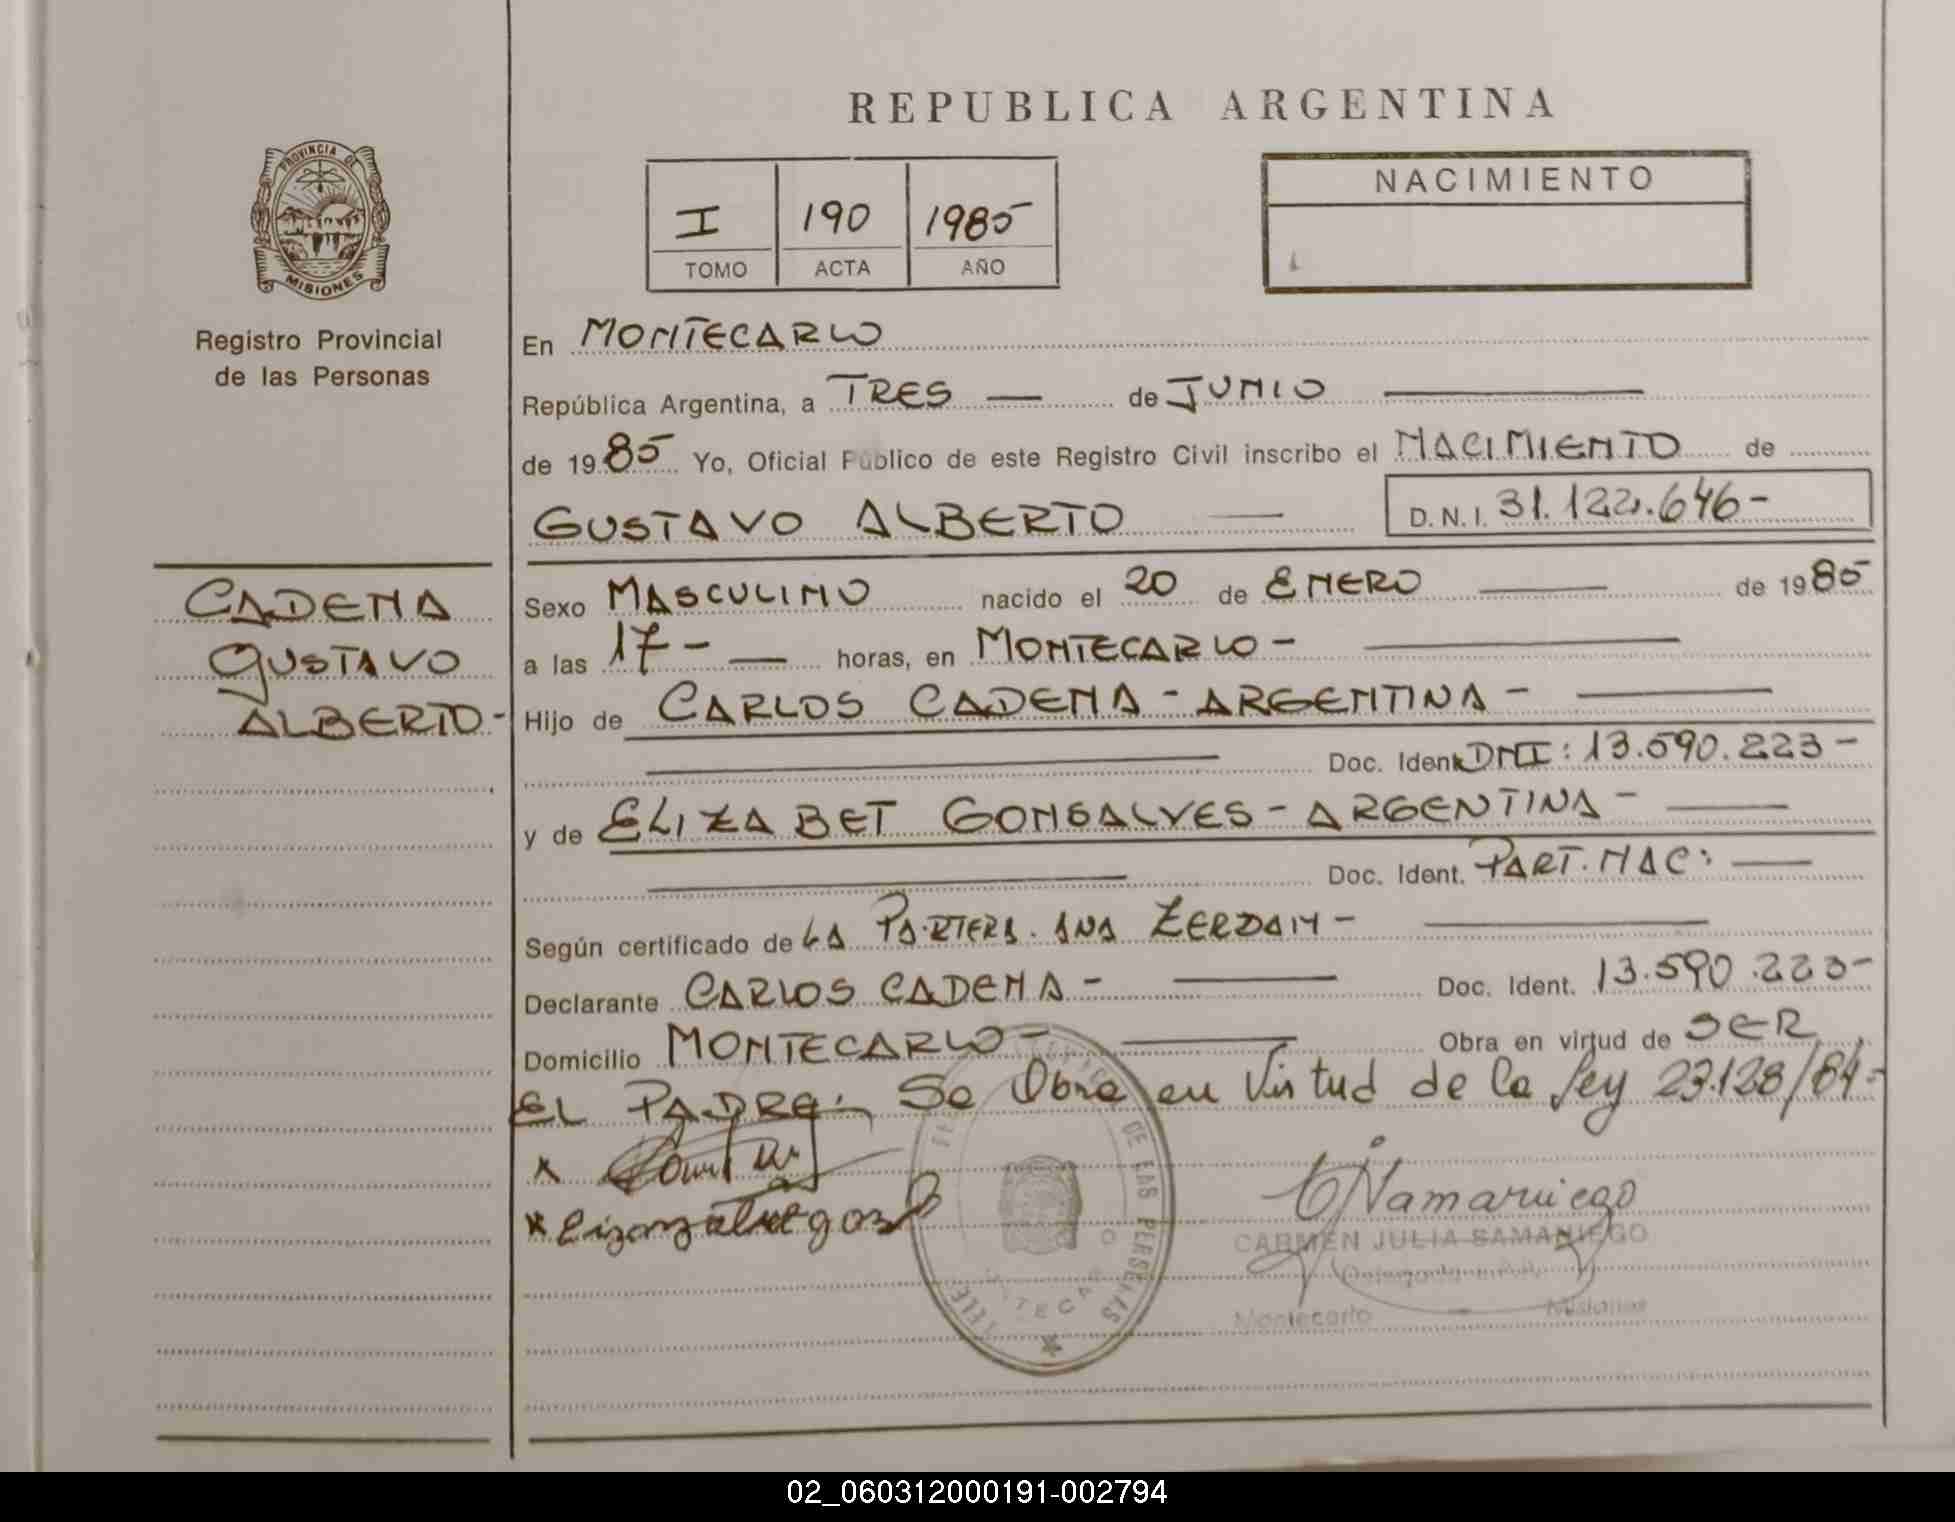 REPUBLICA ARGENTINA
PROVINCIA DE
MISIONES
Registro Provincial
de las Personas
I 190 1985
TOMO ACTA AÑO
NACIMIENTO
En MONTECARLO
República Argentina, a TRES — de JUNIO —
de 1985 Yo, Oficial Público de este Registro Civil inscribo el NACIMIENTO de
GUSTAVO ALBERTO — D. N. I. 31.122.646-
CADENA
GUSTAVO
ALBERTO-
Sexo MASCULINO nacido el 20 de ENERO — de 1985
a las 17- — horas, en MONTECARLO- —
Hijo de CARLOS CADENA - ARGENTINA - —
— Doc. Ident. DNI: 13.590.223-
y de ELIZABET GONSALVES - ARGENTINA - —
— Doc. Ident. PART. NAC: —
Según certificado de LA PARTERA. ANA ZERDAN- —
Declarante CARLOS CADENA- — Doc. Ident. 13.590.223-
Domicilio MONTECARLO- — Obra en virtud de SER
EL PADRE.- Se Obra en Virtud de la Ley 23.128/84-
x
x
DE LAS PERSONAS
MONTECARLO
CARMEN JULIA SAMANIEGO
Delegada
Montecarlo - Misiones
02_060312000191-002794